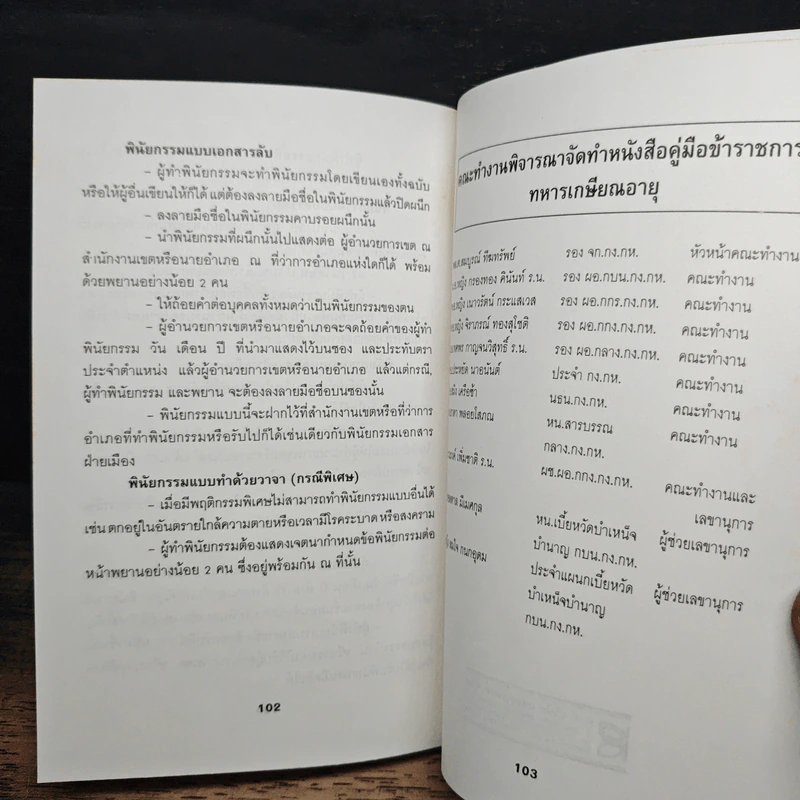 พินัยกรรมแบบเอกสารลับ
– ผู้ทำพินัยกรรมจะทำพินัยกรรมโดยเขียนเองทั้งฉบับ
หรือให้ผู้อื่นเขียนให้ก็ได้ แต่ต้องลงลายมือชื่อในพินัยกรรมแล้วปิดผนึก
– ลงลายมือชื่อในพินัยกรรมคาบรอยผนึกนั้น
– นำพินัยกรรมที่ผนึกนั้นไปแสดงต่อ ผู้อำนวยการเขต ณ
สำนักงานเขตหรือนายอำเภอ ณ ที่ว่าการอำเภอแห่งใดก็ได้ พร้อม
ด้วยพยานอย่างน้อย 2 คน
– ให้ถ้อยคำต่อบุคคลทั้งหมดว่าเป็นพินัยกรรมของตน
– ผู้อำนวยการเขตหรือนายอำเภอจะจดถ้อยคำของผู้ทำ
พินัยกรรม วัน เดือน ปี ที่นำมาแสดงไว้บนซอง และประทับตรา
ประจำตำแหน่ง แล้วผู้อำนวยการเขตหรือนายอำเภอ แล้วแต่กรณี,
ผู้ทำพินัยกรรม และพยาน จะต้องลงลายมือชื่อบนซองนั้น
– พินัยกรรมแบบนี้จะฝากไว้ที่สำนักงานเขตหรือที่ว่าการ
อำเภอที่ทำพินัยกรรมหรือรับไปก็ได้เช่นเดียวกับพินัยกรรมเอกสาร
ฝ่ายเมือง
พินัยกรรมแบบทำด้วยวาจา (กรณีพิเศษ)
– เมื่อมีพฤติกรรมพิเศษไม่สามารถทำพินัยกรรมแบบอื่นได้
เช่น ตกอยู่ในอันตรายใกล้ความตายหรือเวลามีโรคระบาด หรือสงคราม
– ผู้ทำพินัยกรรมต้องแสดงเจตนากำหนดข้อพินัยกรรมต่อ
หน้าพยานอย่างน้อย 2 คน ซึ่งอยู่พร้อมกัน ณ ที่นั้น
102
คณะทำงานพิจารณาจัดทำหนังสือคู่มือข้าราชการ
ทหารเกษียณอายุ
สมบูรณ์ ทีฆทรัพย์ รอง จก.กง.กห. หัวหน้าคณะทำงาน
หญิง กรองทอง คินันท์ ร.น. รอง ผอ.กบน.กง.กห. คณะทำงาน
หญิง เนาวรัตน์ กระแสเวส รอง ผอ.กกร.กง.กห. คณะทำงาน
หญิง จิราภรณ์ ทองสุโชติ รอง ผอ.กกง.กง.กห. คณะทำงาน
กาญจนวิสุทธิ์ ร.น. รอง ผอ.กลาง.กง.กห. คณะทำงาน
ประหยัด นาอนันต์ ประจำ กง.กห. คณะทำงาน
เครือช้า นธน.กง.กห. คณะทำงาน
พลอยโสภณ หน.สารบรรณ คณะทำงาน
กลาง.กง.กห.
เพิ่มชาติ ร.น. ผช.ผอ.กกง.กง.กห. คณะทำงานและ
เลขานุการ
มีเมศกุล หน.เบี้ยหวัดบำเหน็จ ผู้ช่วยเลขานุการ
บำนาญ กบน.กง.กห.
กนกอุดม ประจำแผนกเบี้ยหวัด ผู้ช่วยเลขานุการ
บำเหน็จบำนาญ
กบน.กง.กห.
103